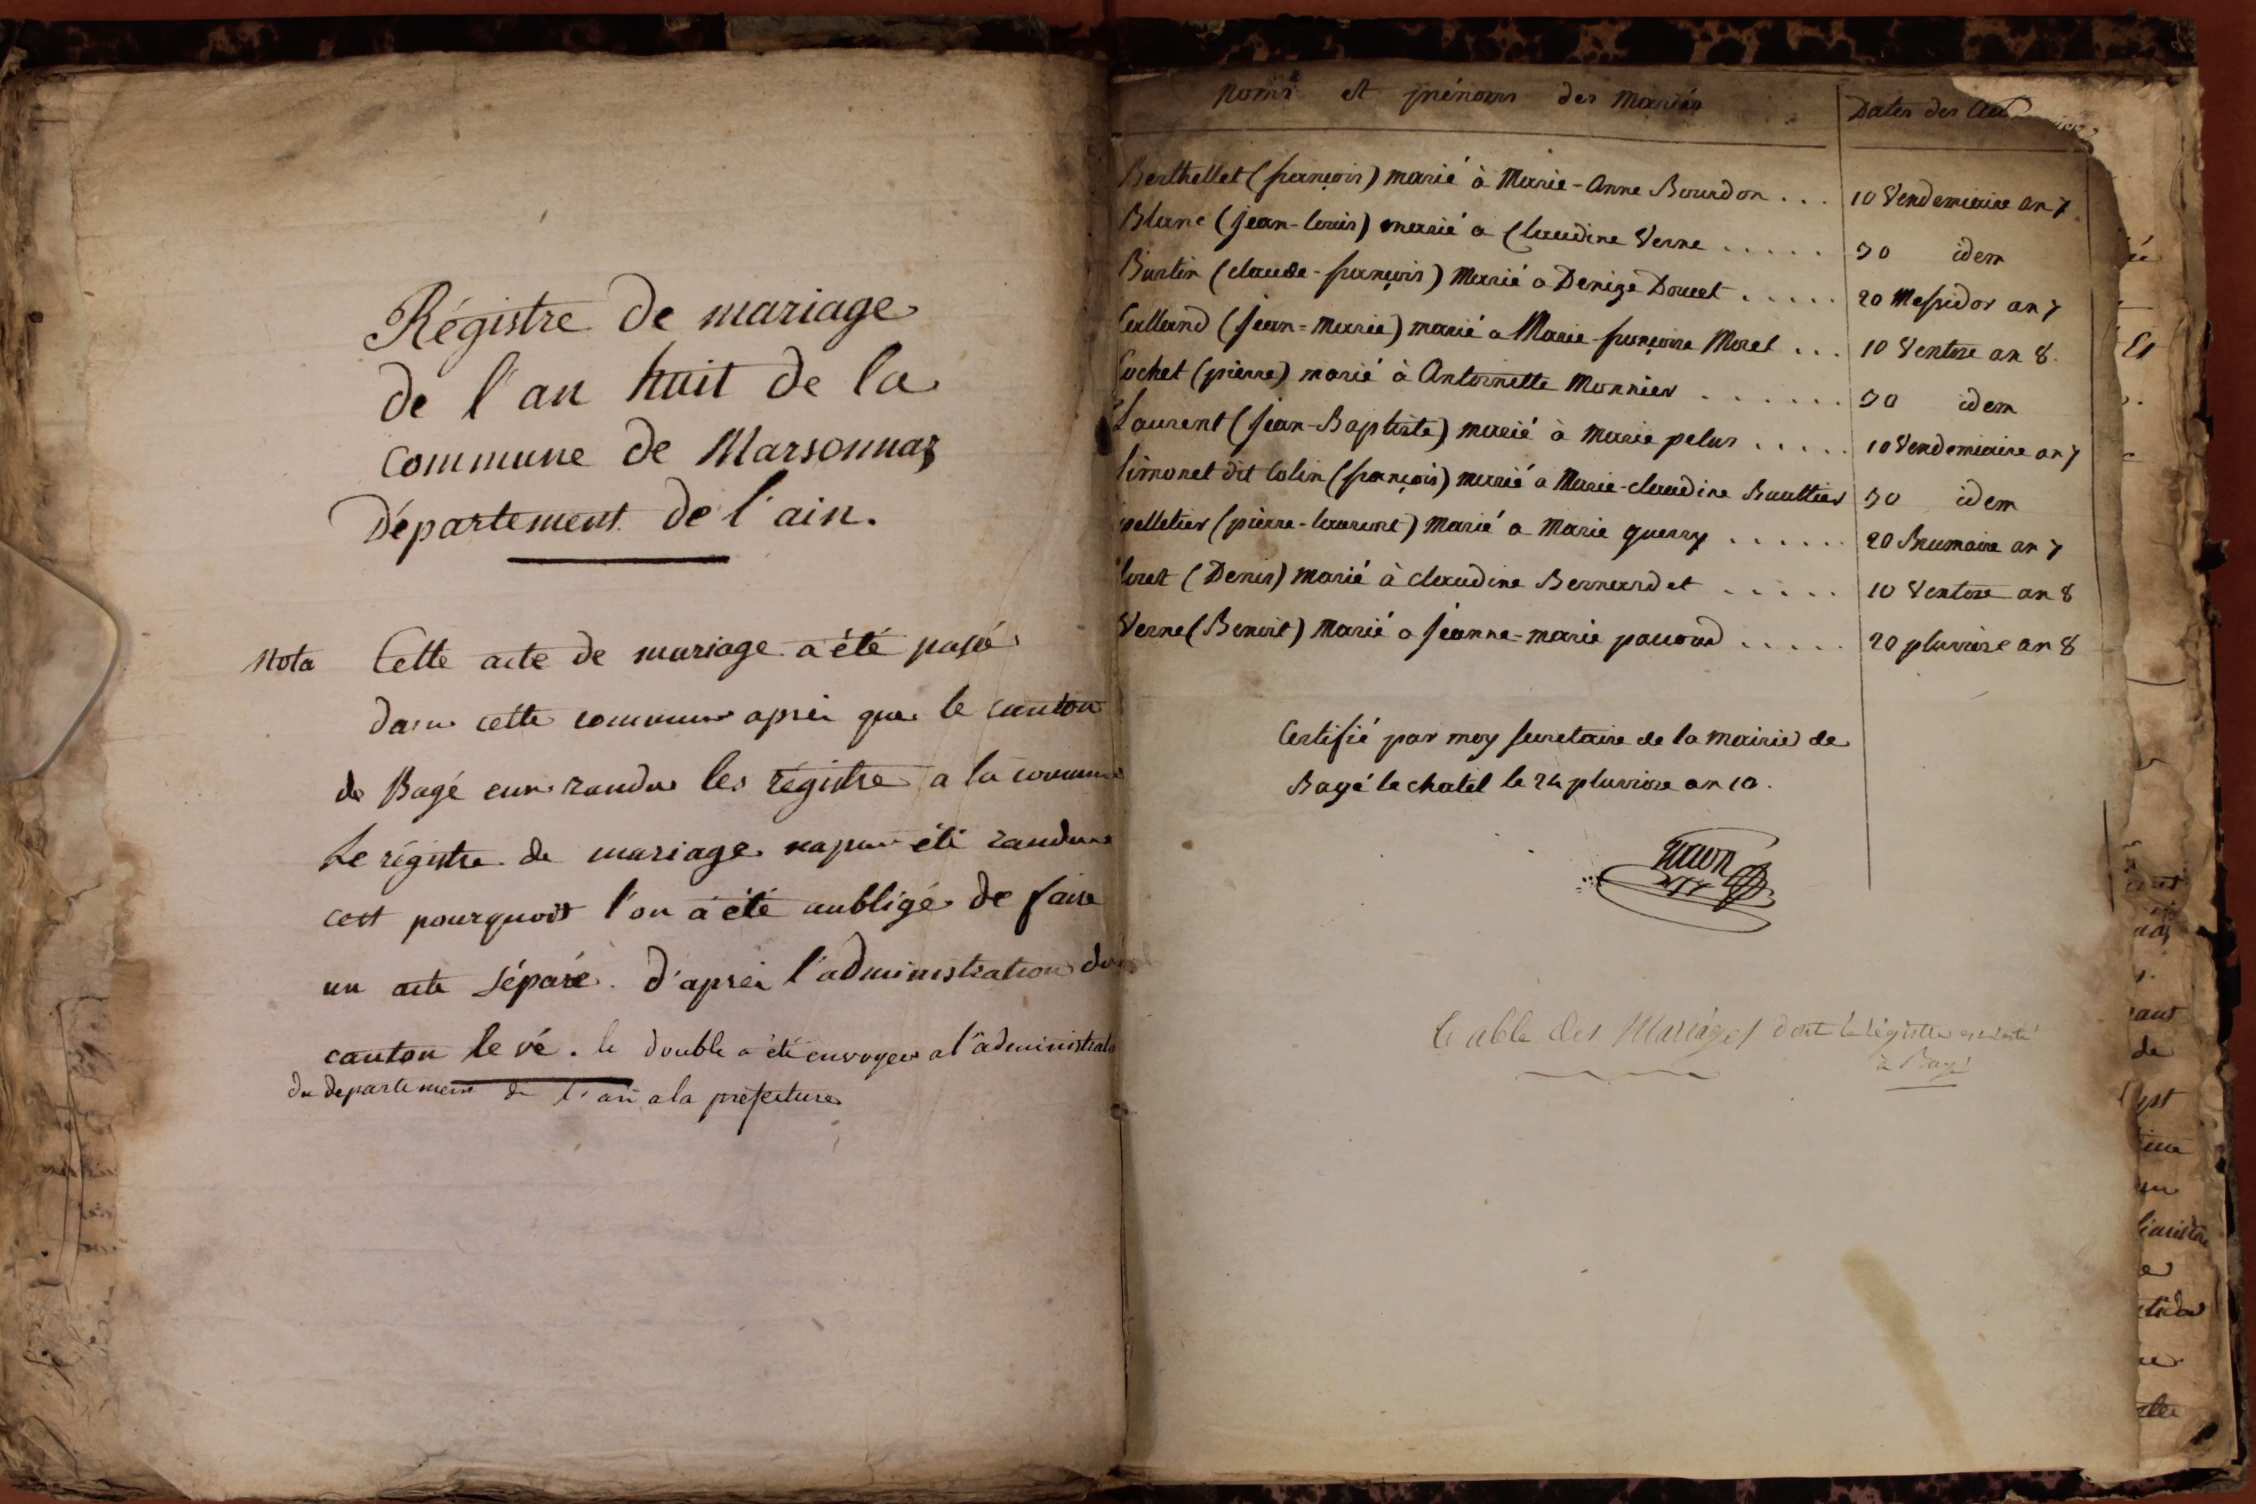 Régistre de mariage
de l'an huit de la
commune de Marsonnas
Département de l'ain.
Nota Cette acte de mariage a été passé
dans cette commune aprei que le canton
de Bagé eur randu les régistre a la commune
Le régistre de mariage na pas été randu
cest pourquoit l'on a été aubligé de faire
un acte séparé. d'aprei l'administration du
canton le vé. le double a été envoyer a l'administrat
du departement de l'ain a la prefecture
Noms et prénoms des Mariés Dates des Act
Berthellet (françois) marié à Marie-Anne Bourdon . . . 10 Vendemiaire an 7
Blanc (jean-louis) marié a Claudine Verne . . . . . 30 idem
Burtin (claude-françois) Marié a Denize Doucet . . . . . 20 Messidor an 7
Calland (jean=Marie) marié a Marie-françoise Morel . . . 10 Ventose an 8.
Cochet (pierre) marié à Antoinette Monnier . . . . . . . 30 idem
Laurent (jean-Baptiste) marié à Marie pelus . . . . . 10 Vendemiaire an 7
Simonet dit Colin (françois) marié a Marie-claudine Baultier 30 idem
pelletier (pierre-laurent) Marié a Marie guerry . . . . . . 20 Brumaire an 7
(Denis) Marié à claudine Bernardet . . . . . 10 Ventose an 8
Verne (Benoit) Marié a jeanne-marie pauoud . . . . . 20 pluviose an 8
Certifié par moy secretaire de la Mairie de
Bagé le chatel le 24 pluviose an 10.
table des Mariages dont le régistre est resté
à Bagé